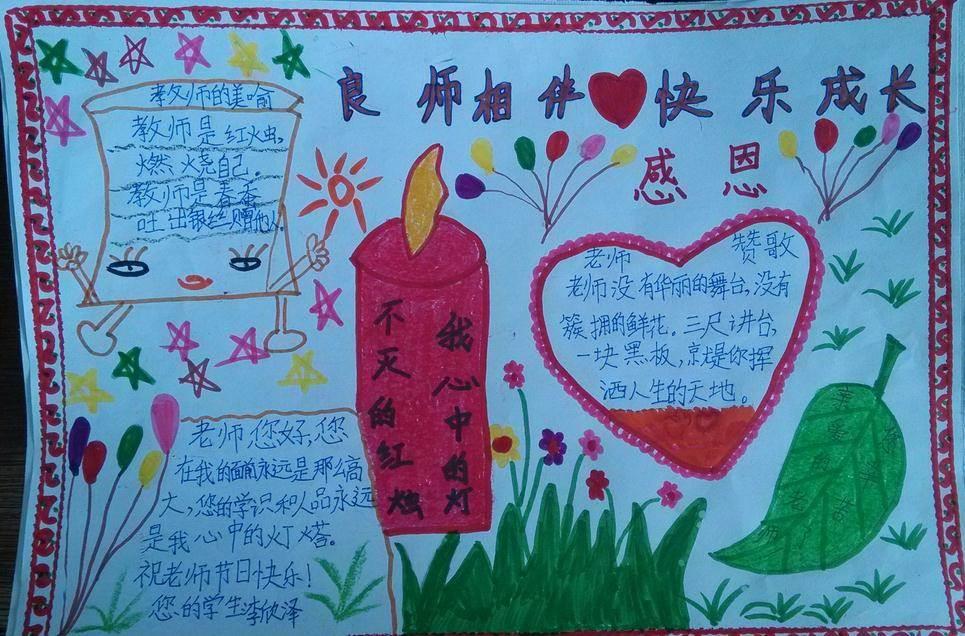 良师相伴 快乐成长
感恩
教师的美喻
教师是红火虫,
燃烧自己。
教师是春蚕
吐出银丝赠他人
我心中的灯
不灭的红烛
老师 赞歌
老师没有华丽的舞台,没有
簇拥的鲜花。三尺讲台,
一块黑板,就是你挥
洒人生的天地。
老师您好,您
在我的面前永远是那么高
大,您的学识和人品永远
是我心中的灯塔。
祝老师节日快乐!
您的学生李欣泽